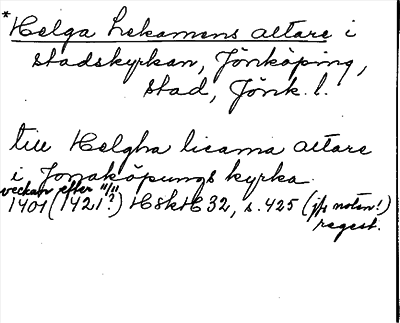 *Helga Lekamens altare i
stadskyrkan, Jönköping,
stad, Jönk. l.
till Helgha licama altare
i Jonaköpungs kyrka.
veckan efter 11/11
1401 (1421?) HSkH 32, s. 425 (jfr noten!)
regest.